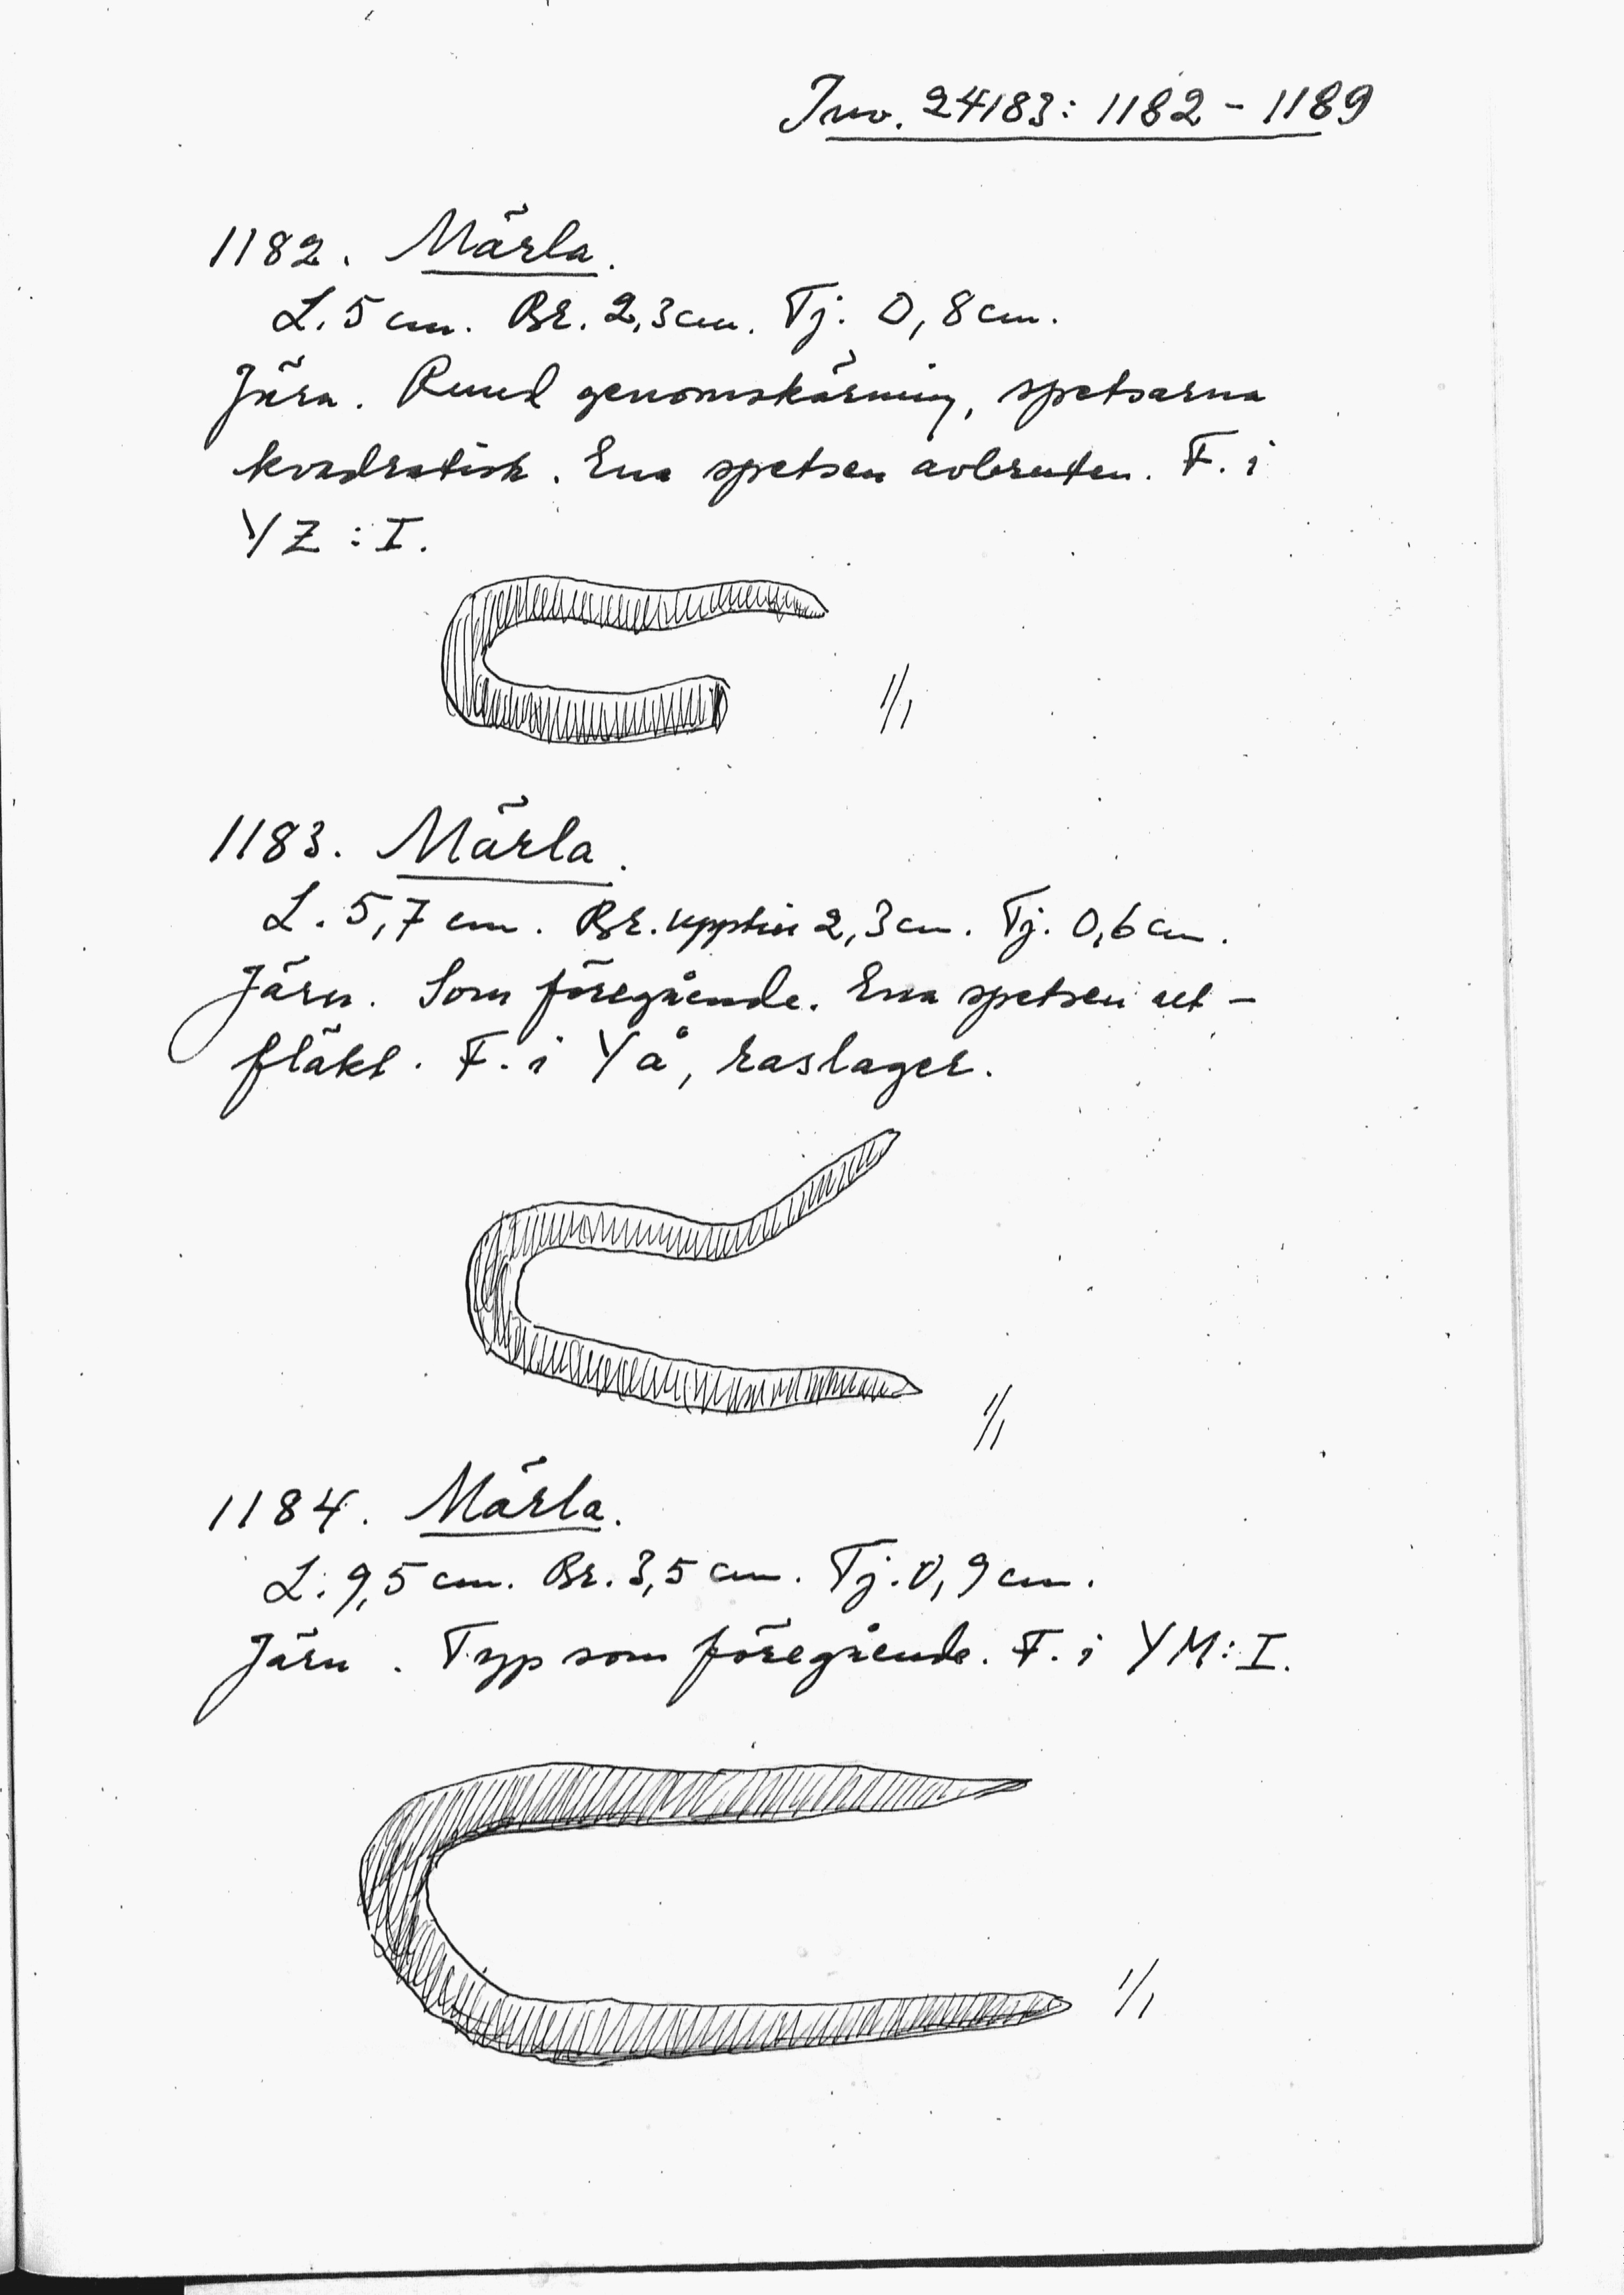 Inv. 24183: 1182 - 1189
1182. Märla.
L. 5 cm. Br. 2,3 cm. Tj. 0,8 cm.
Järn. Rund genomskärning, spetsarna
kvadratisk. Ena spetsen avbruten. F. i
YZ : I.
1/1
1183. Märla.
L. 5,7 cm. Br. upptill 2,3 cm. Tj. 0,6 cm.
Järn. Som föregående. Ena spetsen ut-
fläkt. F. i Yå, raslager.
1/1
1184. Märla.
L. 9,5 cm. Br. 3,5 cm. Tj. 0,9 cm.
Järn. Typ som föregående. F. i YM: I.
1/1